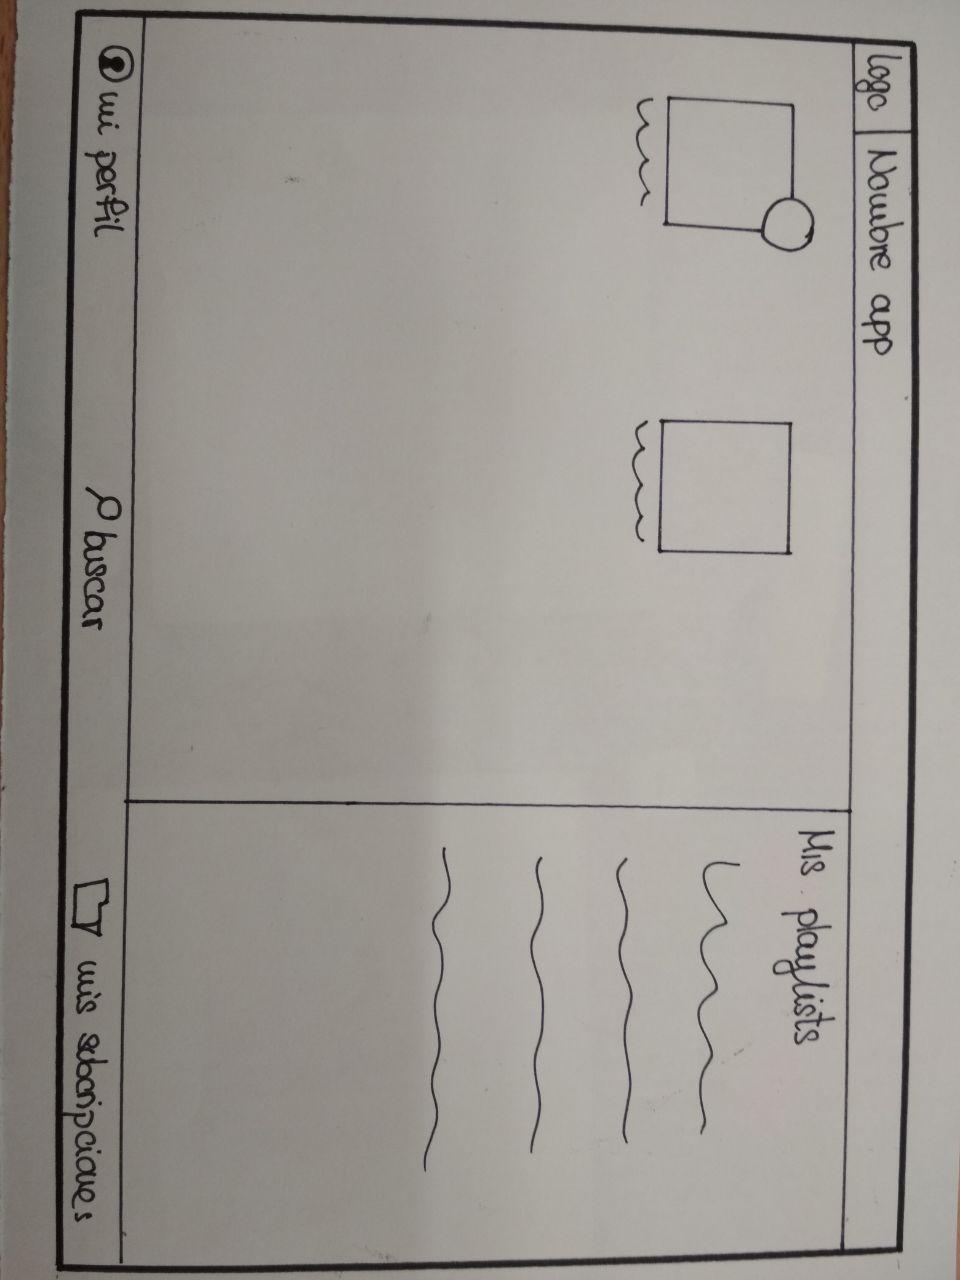 logo
Nombre app
Mis playlists
mi perfil
buscar
mis subcripciones